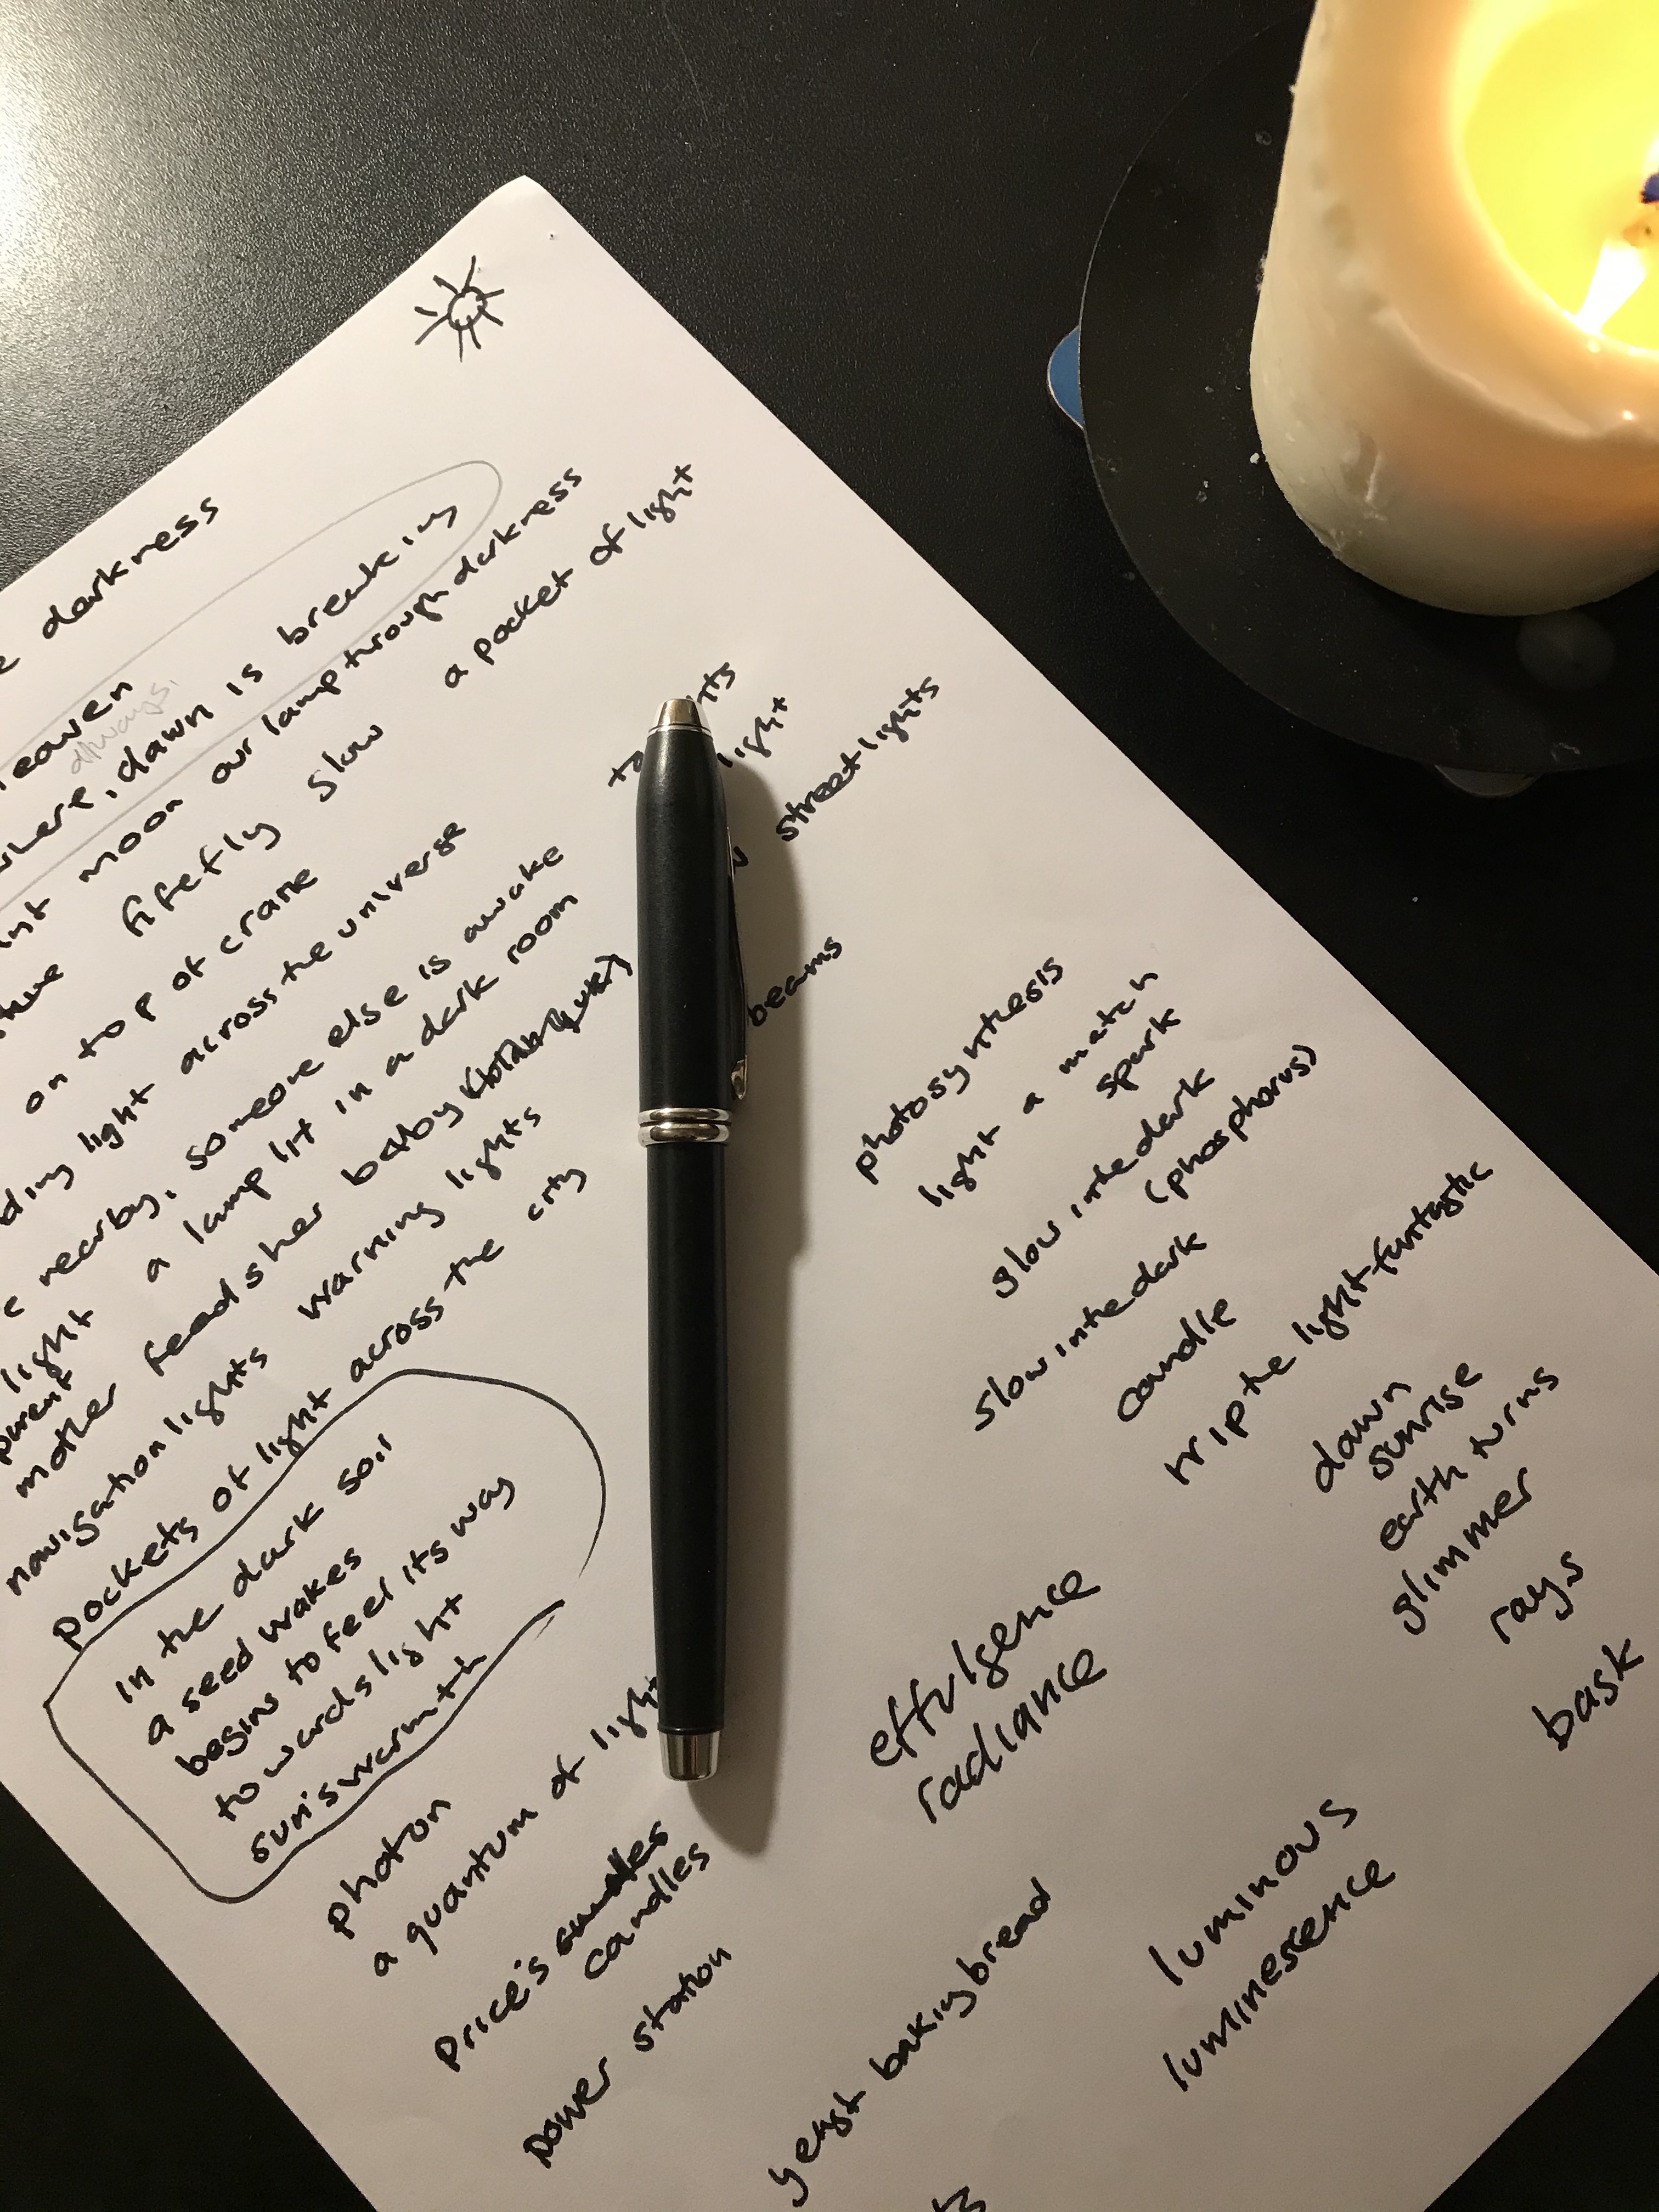 darkness
dawn is breaking
always,
moon our lamp through darkness
firefly slow a pocket of light
on top of crane
light across the universe
nearby, someone else is awake
light a lamp lit in a dark room
parent
mother feeds her baby
navigation lights warning lights
pockets of light across the city
in the dark soil
a seed wakes
begins to feel its way
towards light
sun's warmth
photon
a quantum of light
Price's candles
candles
power station
light
streetlights
beams
photosynthesis
light a match
spark
glow in the dark
(phosphorus)
slow in the dark
candle
trip the light fantastic
dawn
sunrise
earth turns
glimmer
rays
bask
effulgence
radiance
luminous
luminescence
yeast baking bread